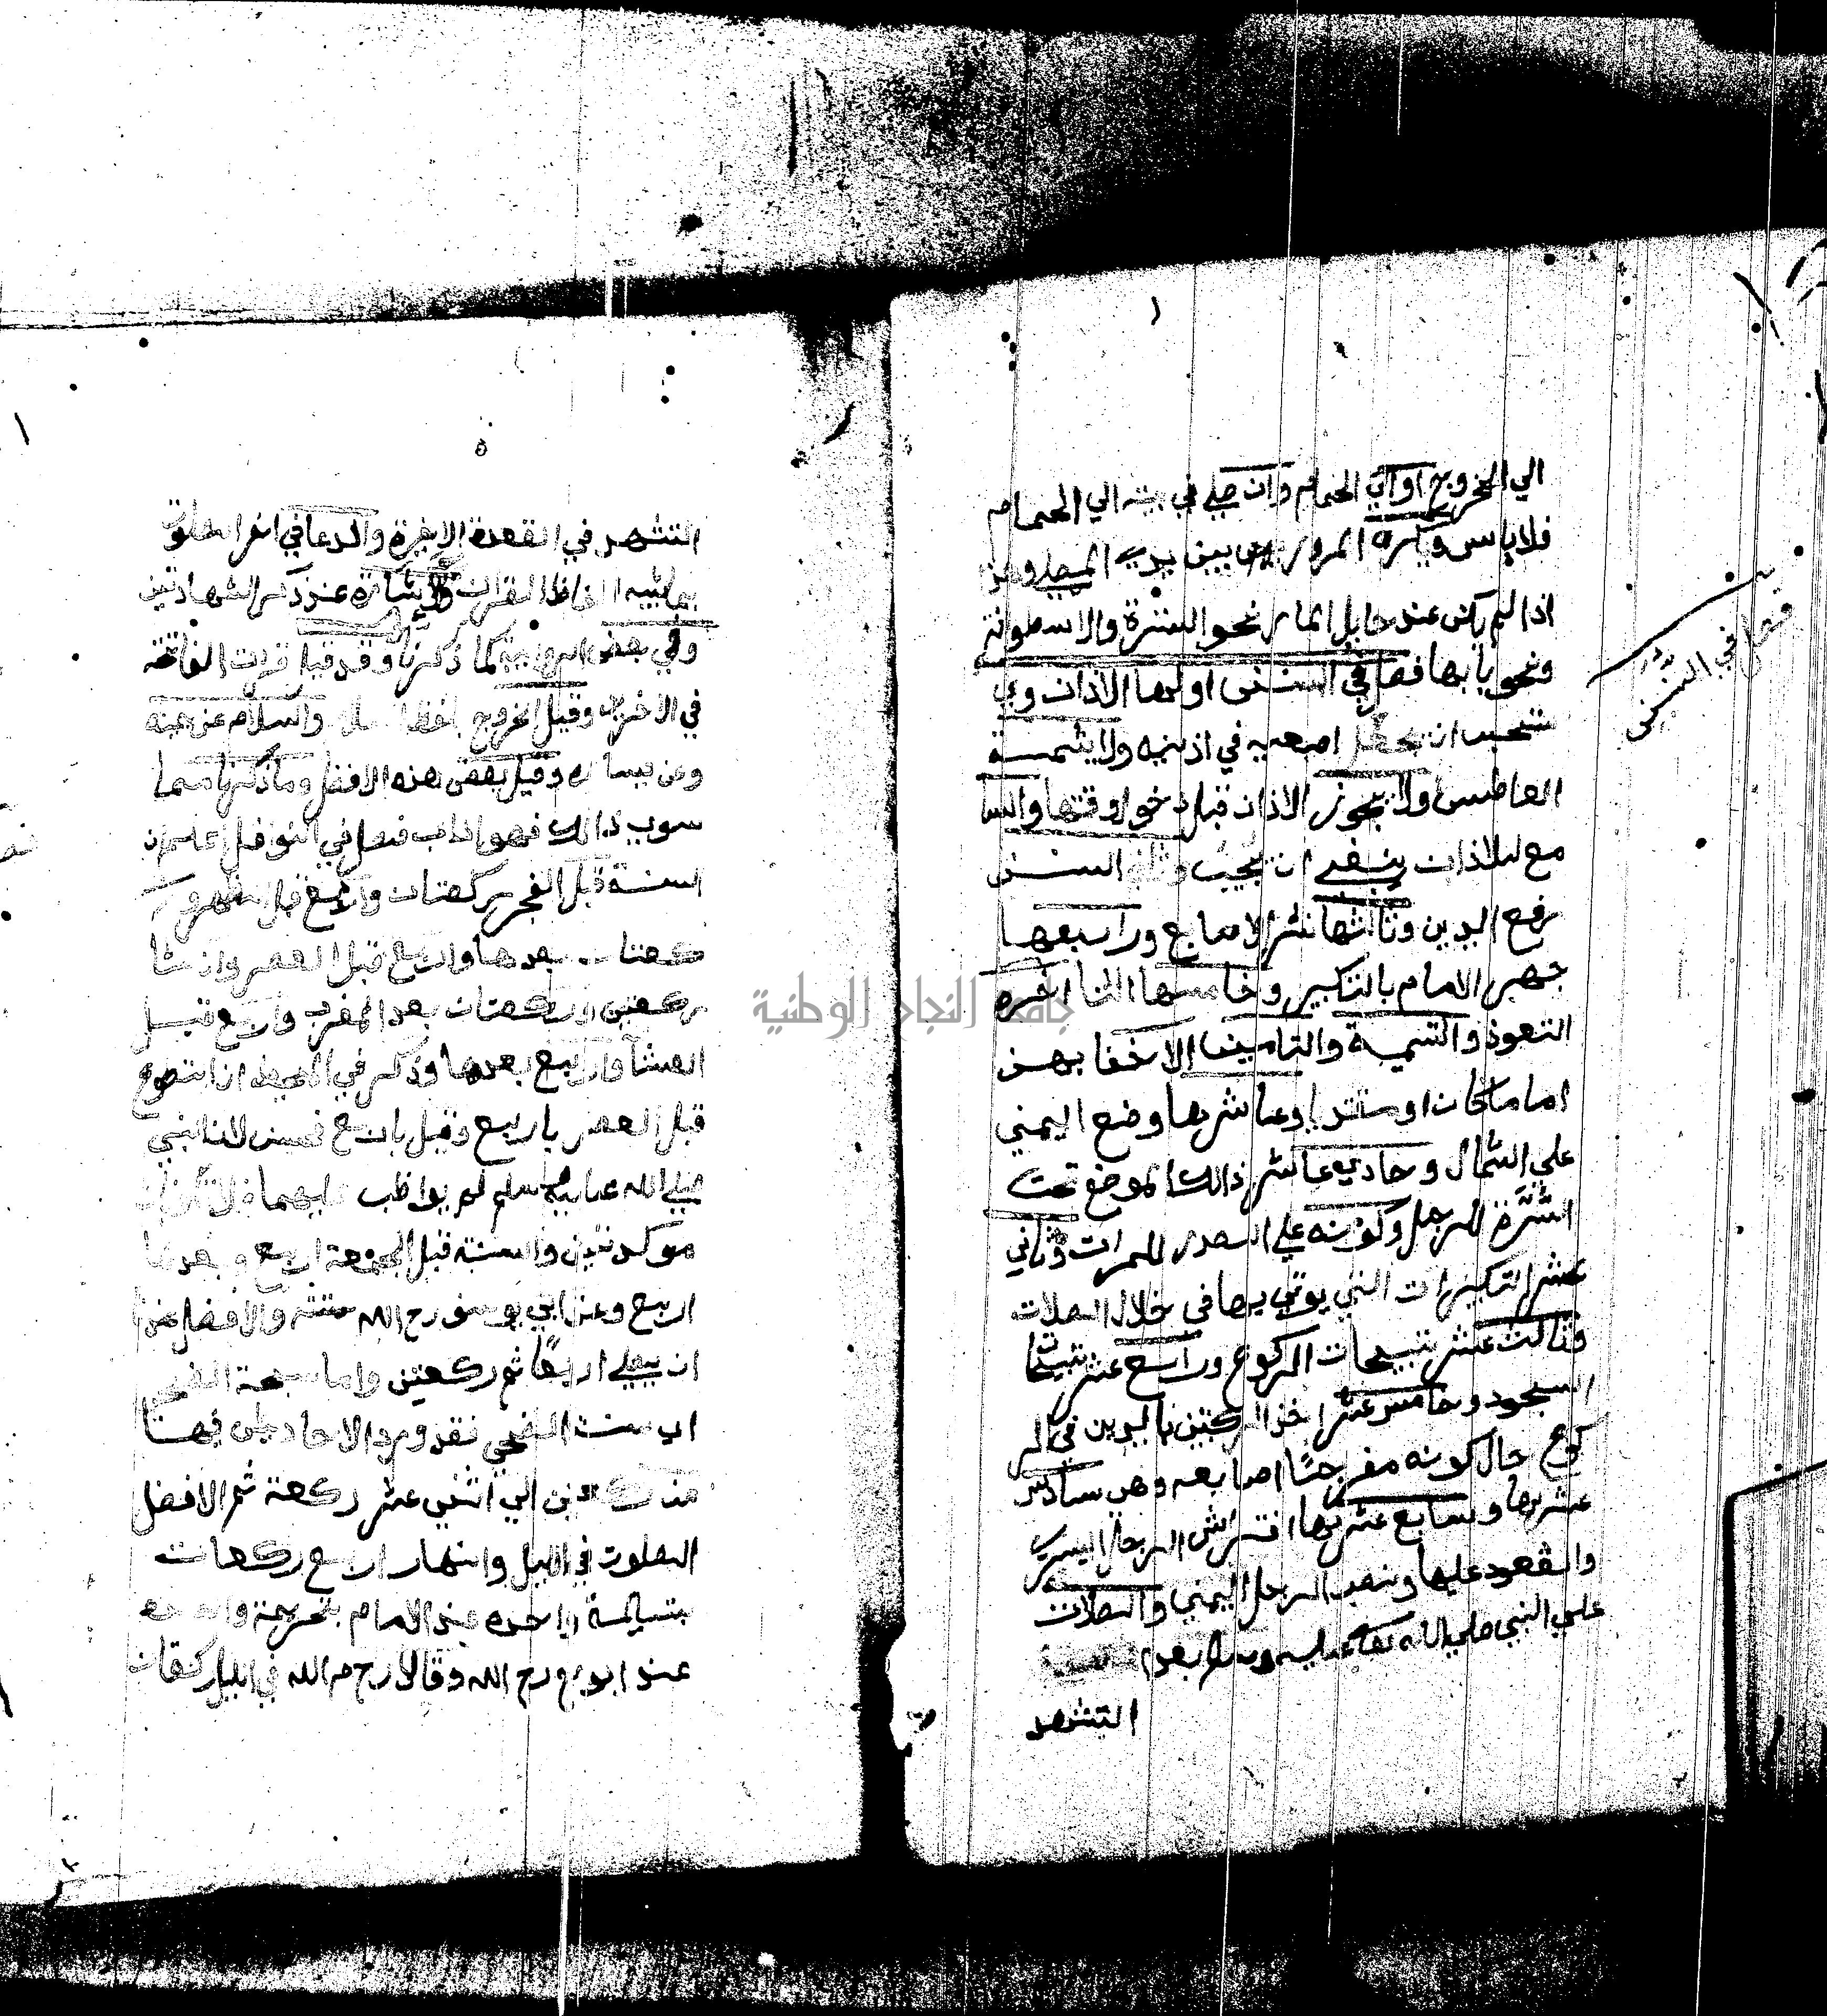 الي الخروج او الي الحمام وان صلي في بيته الي الحمام
فلا باس ويكره المرور بين يدي المصلي
اذا لم يكن عند حايل اما نحو السترة والاسطونة
ونحوها فصل في السنن اولها الاذان و
يستحب ان يجعل اصبعيه في اذنيه ولا يشمت
العاطس ولا يجوز الاذان قبل دخول وقتها والسا
مع للاذان ينبغي ان يجيب وثاني السنن
رفع اليدين وثالثها نشر الاصابع ورابعها
جهر الامام بالتكبير وخامسها الثنا اخره
التعوذ والتسمية والتامين الاخفا بهن
اماما كان او مقتديا وعاشرها وضع اليمني
علي الشمال وحادي عاشر ذالك الموضع تحت
السُّرَّة للرجل وكونه علي الصدر للمرات وثاني
عشر التكبيرات التي يوتي بها في خلال الصلات
وثالث عشر تسبيحات الركوع ورابع عشر تسبيحات
السجود وخامس عشر اخذ الركبتين باليدين في الر
كوع حال كونه مفرجًا اصابعه وهي سادس
عشرها وسابع عشرها افتراش الرجل اليسري
والقعود عليها ونصب الرجل اليمني والصلات
علي النبي صلي الله تعا عليه وسلم بعد
التشهد
فصل في السنن
التشهد في القعدة الاخيرة والدعا في اخر الصلوة
بما يشبه الفاظ القران والاشارة عند ذكر الشهادتين
وفي بعض الرواية كما ذكرنا وقد قيل قرات الفاتحة
في الاخريين وقيل الخروج بلفظ السلام والسلام عن يمينه
وعن يساره وقيل بعض هذه الافضل وما ذكرنا مما
سوي ذالك فهو اداب فصل في النوفل اعلم ان
السنة قبل الفجر ركعتان واربع قبل الظهر و
ركعتان بعدها واربع قبل العصر وان شا
ركعتين وركعتان بعد المغرب واربع قبل
العشا واربع بعدها وذكر في المحيط ان تتطوع
قبل العصر باربع وقبل باربع فحسن لان النبي
صلي الله عليه وسلم لم يواظب عليهما
موكدتين والسنة قبل الجمعة اربع وبعدها
اربع وعن ابي يوسف رح الله ستة والافضل
ان يصلي اربعًا ثم ركعتين واما سبحة الضحي
اي سنت الضحي فقد ورد الاحاديث فيها
من ركعتين الي اثني عشر ركعة ثم الافضل
الصلوت في الليل والنهار اربع ركعات
بتسليمة واحده عند الامام بتحريمة واحده
عند ابو ح رح الله وقالا رحم الله في الليل ركعتان
جامعة النجاح الوطنية